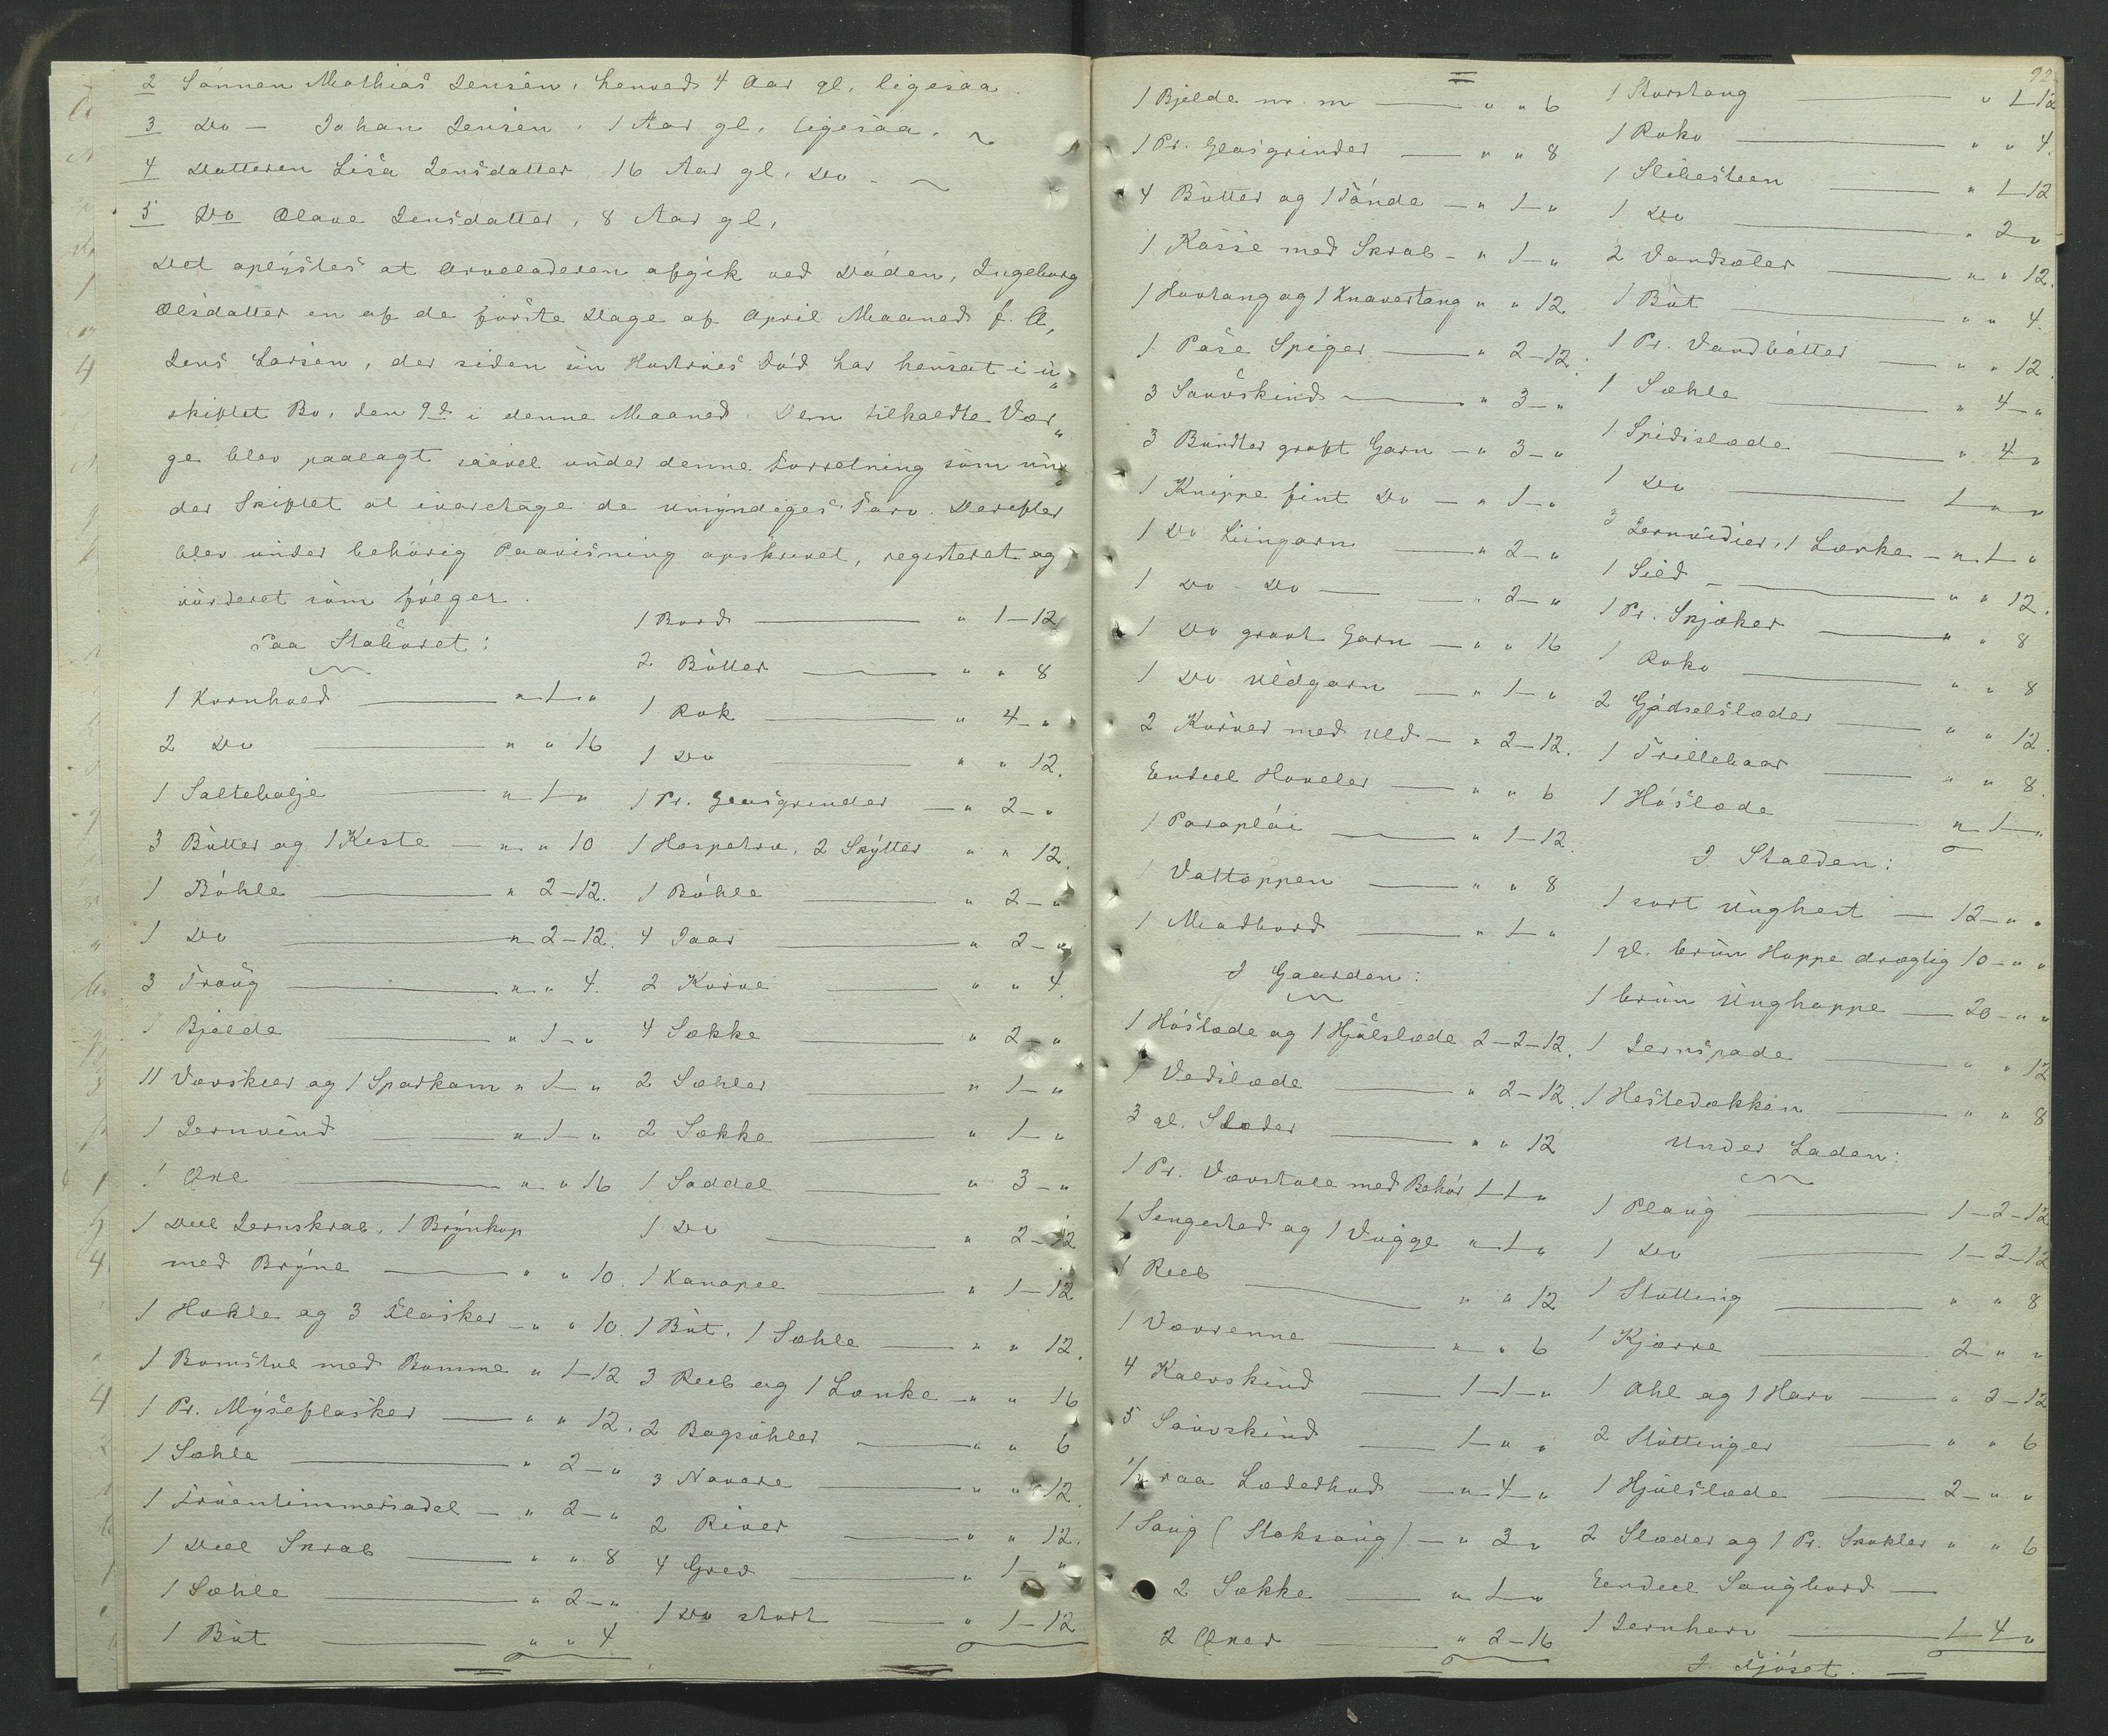 2 Sønnen Mathias Jensen, henved 4 Aar gl. ligesaa.
3 Do — Johan Jensen, 1 Aar gl. ligesaa.
4 Datteren Lisa Jensdatter 16 Aar gl. Do -
5 Do Olave Jensdatter, 8 Aar gl.
Det oplystes at Arveladeren afgik ved Døden, Ingeborg
Olsdatter en af de første Dage af April Maaned f. A,
Jens Larsen, der siden sin Hustrues Død har hensat i u„
skiftet Bo, den 9d i denne Maaned. Den tilkaldte Vær„
ge blev paalagt saavel under denne Forretning som un„
der Skiftet at ivaretage de umyndiges Tarv. Derefter
blev under behørig Paavisning opskrevet, registeret og
vurderet som følger.
Paa Staburet:
1 Kornhold — " 1 "
2 Do — " " 16
1 Saltebalje — " 1 "
3 Bøtter og 1 Kiste — " " 10
1 Bøhle — " 2-12.
1 Do — " 2-12.
3 Traug — " " 4.
1 Bjelde — " 1 - "
11 Vævskeer og 1 Sparkam " 1 - "
1 Jernvind — " 1 - "
1 Øxe — " " 16
1 Deel Jernskrab, 1 Brynkop
med Bryne — " " 10.
1 Hekle og 3 Flasker — " " 10.
1 Bomstol med Bomme " 1-12
1 Pr. Myseflasker — " " 12.
1 Sæhle — " 2 - "
1 Fruentimmersadel — " 2 - "
1 Deel Skrab — " " 8
1 Sæhle — " 2 - "
1 Bøt — " " 4
1 Bord — " 1-12
2 Bøtter — " " 8
1 Rok — " 4 - "
1 Do — " " 12.
1 Pr. Glasgrinder — " 2 - "
1 Haspetre, 2 Skytter " " 12.
1 Bøhle — " 2 - "
4 Jaar — " 2 - "
2 Kurve — " " 4.
4 Sække — " 2 - "
2 Sæhler — " 1 - "
2 Sække — " 1 - "
1 Saddel — " 3 - "
1 Do — " 2-12
1 Kanapee — " 1-12
1 Bøt, 1 Sæhle — " " 12.
3 Reeb og 1 Lænke — " " 16
2 Bagsæhler — " " 6
3 Navare — " " 12.
2 River — " " 12.
4 Grev — " 1 - "
1 Do stort — " 1-12
1 Bjelde m. m — " " 6
1 Pr. Glasgrinder — " " 8
4 Bøtter og 1 Tønde — " 1 - "
1 Kasse med Skrab — " 1 - "
1 Hovtang og 1 Knivertang " " 12
1 Pose Spiger — " 2-12.
3 Sauskind — " 3 - "
3 Bundter groft Garn — " 3 - "
1 Knippe fint Do — " 1 - "
1 Do Liingarn — " 2 - "
1 Do Do — " 2 - "
1 Do grovt Garn — " " 16
1 Do Uldgarn — " 1 - "
2 Kurver med Uld — " 2-12.
Eendeel Hoveler — " " 6
1 Paraplui — " 1-12.
1 Vattoppen — " " 8
1 Madbord — " 1 - "
I Gaarden:
1 Høslæde og 1 Hjulslæde 2-2-12.
1 Vedslæde — " 2-12.
3 gl. Slæder — " " 12
1 Pr. Vævstole med Behør 1-1 "
1 Sengested og 1 Vugge " 1 "
1 Reeb — " " 12
1 Vævrenne — " " 6
4 Kalvskind — 1-1 - "
5 Sauskind — 1 - " "
1/2 raa Læderhud — " 4 - "
1 Saug (Stoksaug) — " 3 "
2 Sække — " 1 "
2 Øxer — " 2-16
92.
1 Storstang — " 1-12
1 Roko — " " 4.
1 Slibesteen — " 1-12
1 Do — " 2 "
2 Vandsæler — " " 12.
1 Bøt — " " 4.
1 Pr. Vandbøtter — " " 12.
1 Sæhle — " 4 - "
1 Spidsslæde — " 4 "
1 Do — 1 " "
3 Jernvidier, 1 Lænke — " 1 "
1 Sild — " " 12.
1 Pr. Skjæker — " " 8
1 Roko — " " 8
2 Gjødselslæder — " " 12.
1 Trillebaar — " " 8.
1 Høslæde — " 1 - "
I Stalden:
1 sort Unghest — 12 - " "
1 gl. brun Hoppe drægtig 10 - " "
1 brun Unghoppe — 20 - " "
1 Jernspade — " " 12
1 Hestedækken — " " 8
Under Laden:
1 Plaug — 1-2-12
1 Do — 1-2-12
1 Støtting — " " 8
1 Kjærre — 2 - " "
1 Ahl og 1 Harv — " 2-12
2 Støttinger — " " 6
1 Hjulslæde — 2 - " "
2 Slæder og 1 Pr. Skokler " " 6
Eendeel Saugbord —
1 Jernharv — 1-4 "
I Fjøset.